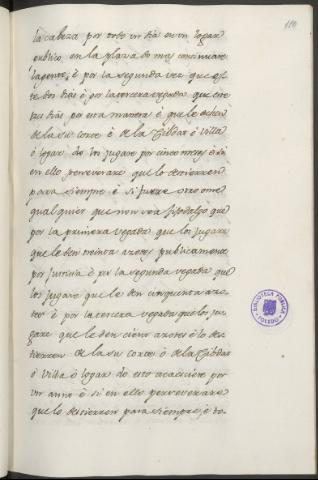 180
la cabeza por todo un dia en un logar
publico, en la plaza do mas continuare
la gente, è por la segunda vez que esté
dos dias è por la tercera vegada que esté
tres dias por esta manera è que le echen
de la su corte è de la Cibdat ò villa
ò logar do los jugare por cinco meses è si
en ello perseverare que lo destierren
para siempre è si fuere otro ome
qual quier que non sea fijodalgo que
por la primera vegada que los jugare
que le den treinta azotes publicamente
por justicia è por la segunda vegada que
los jugare que le den cinquenta azo-
tes è por la tercera vegada que los ju-
gare que le den cient azotes è lo des-
tierren de la su corte ò de la Cibdat
ò Villa ò logar do esto acaeciere por
un anno è si en ello perseverare
que lo destierren para siempre, è to-
BIBLIOTECA PUBLICA
TOLEDO